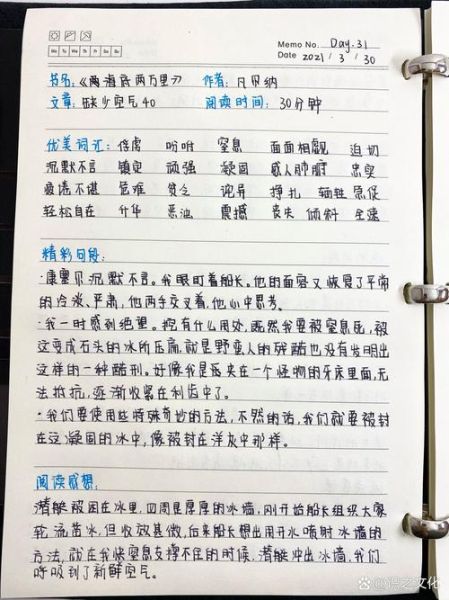 Memo No. Day.31
Mo Tu We Th Fr Sa Su
Date 2021 / 3 / 30
书名:《海底两万里》 作者:凡尔纳
文章:缺少空气40 阅读时间:30分钟
优美词汇: 俘虏 吩咐 窒息 面面相觑 迫切
沉默不言 镇定 顽强 凝固 感人肺腑 忠实
疲惫不堪 危难 贫乏 诧异 挣扎 牺牲 急促
轻松自在 升华 震撼 丧失 倾斜 全速
精彩句段:
·康塞尔沉默不言。我眼盯着船长。他的面容又恢复了平常
的冷淡、严肃,他两手交叉着,他心中思考。
·我一时感到绝望。挖有什么用处,既然我要被窒息死,被
这变成石头的冰所压扁,就是野蛮人的残酷也没有发明出
这样的一种酷刑。好像我是医夹在一个怪物的牙床里面,无
法抵抗,逐渐收紧在利齿中了。
·我们要使用些特殊奇妙的方法,不然的话,我们就要被封
在这凝固的冰中,像被封在洋灰中那样。
阅读感想:
潜艇被困在冰里,四周是厚厚的冰墙,刚开始船长组织大家
轮流凿冰,但收效甚微,后来船长想出用开水喷射冰墙的
方法,就在我快窒息支撑不住的时候,潜艇冲出冰墙,我们
呼吸到了新鲜空气。